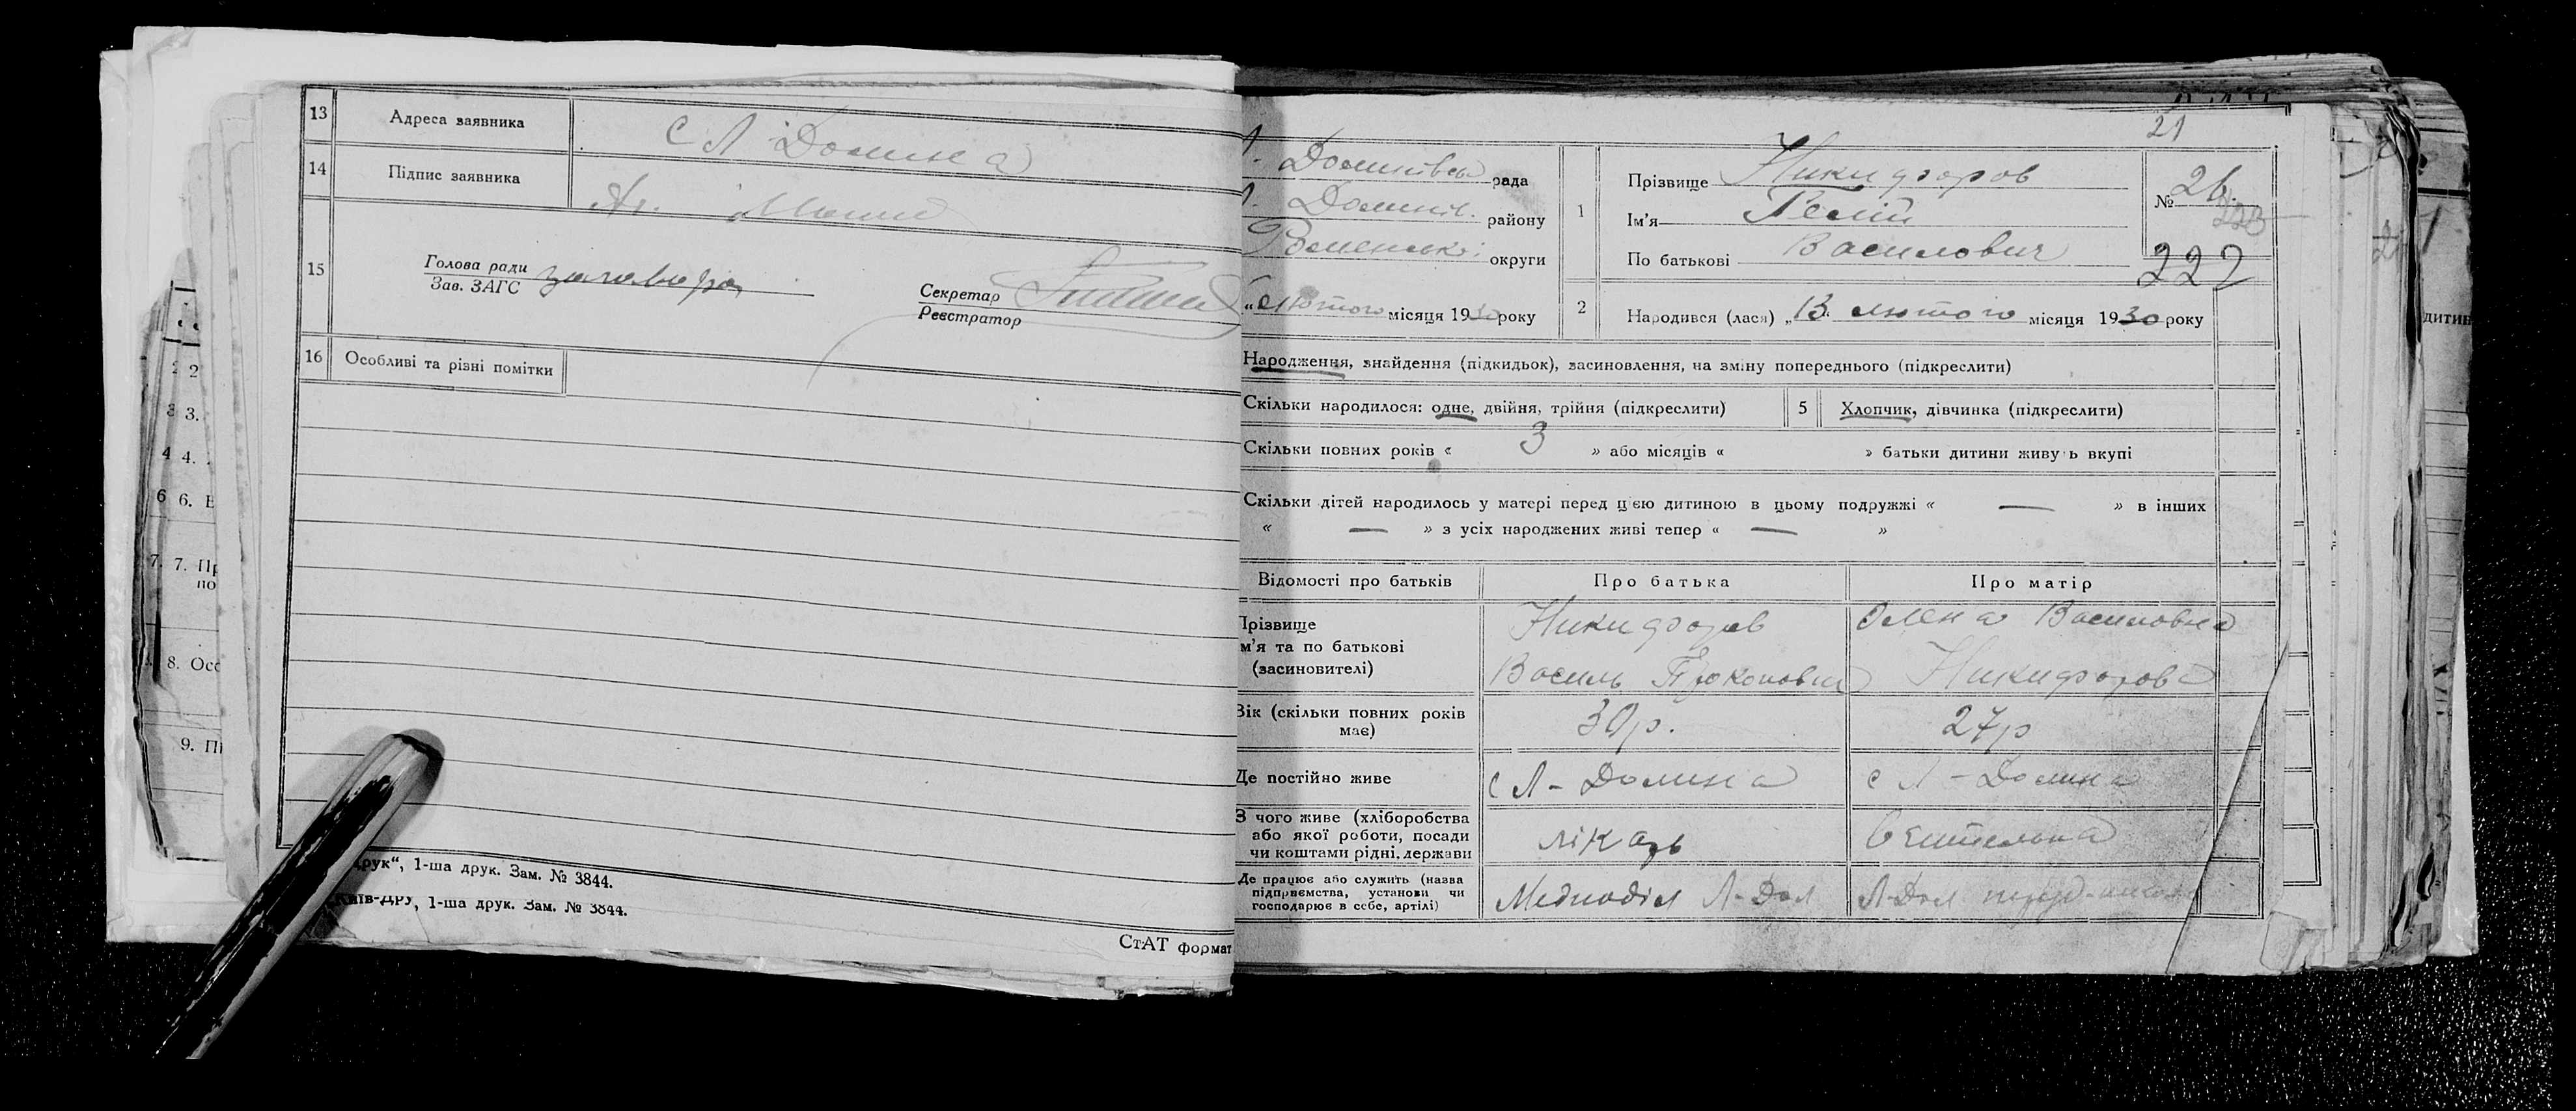 13 Адреса заявника С Л Долина
14 Підпис заявника
15 Голова ради
Зав. ЗАГС
Секретар
Реєстратор
16 Особливі та різні помітки
2 2
3 3.
4 4.
6 6. Е
7. 7. Пр
по
8. Осо
9. П
друк“, 1-ша друк. Зам. № 3844.
Київ-ДРУ, 1-ша друк. Зам. № 3844.
СтАТ формат
21
Л. Долинівсь рада
Л. Долинів. району
Роменської округи
„лютого місяця 1930 року
1 Прізвище Никифоров
Ім'я Гелій
По батькові Василович
№ 26.
222
2 Народився (лася) „13 лютого місяця 1930 року
Народження, знайдення (підкидьок), засиновлення, на зміну попереднього (підкреслити)
Скільки народилося: одне, двійня, трійня (підкреслити) 5 Хлопчик, дівчинка (підкреслити)
Скільки повних років « 3 » або місяців « » батьки дитини живуть вкупі
Скільки дітей народилось у матері перед цією дитиною в цьому подружжі « — » в інших
« — » з усіх народжених живі тепер « — »
Відомості про батьків Про батька Про матір
Прізвище
м'я та по батькові
(засиновителі)
Никифоров
Василь Прокопович
Олена Василовна
Никифорова
Вік (скільки повних років
має) 30р. 27р
Де постійно живе с Л - Долина с Л - Долина
З чого живе (хліборобства
або якої роботи, посади
чи коштами рідні, держави
лікарь Вчителька
Де працює або служить (назва
підприємства, установи чи
господарює в себе, артілі)
Медвідділ Л-Дол Л-Дол
дитин